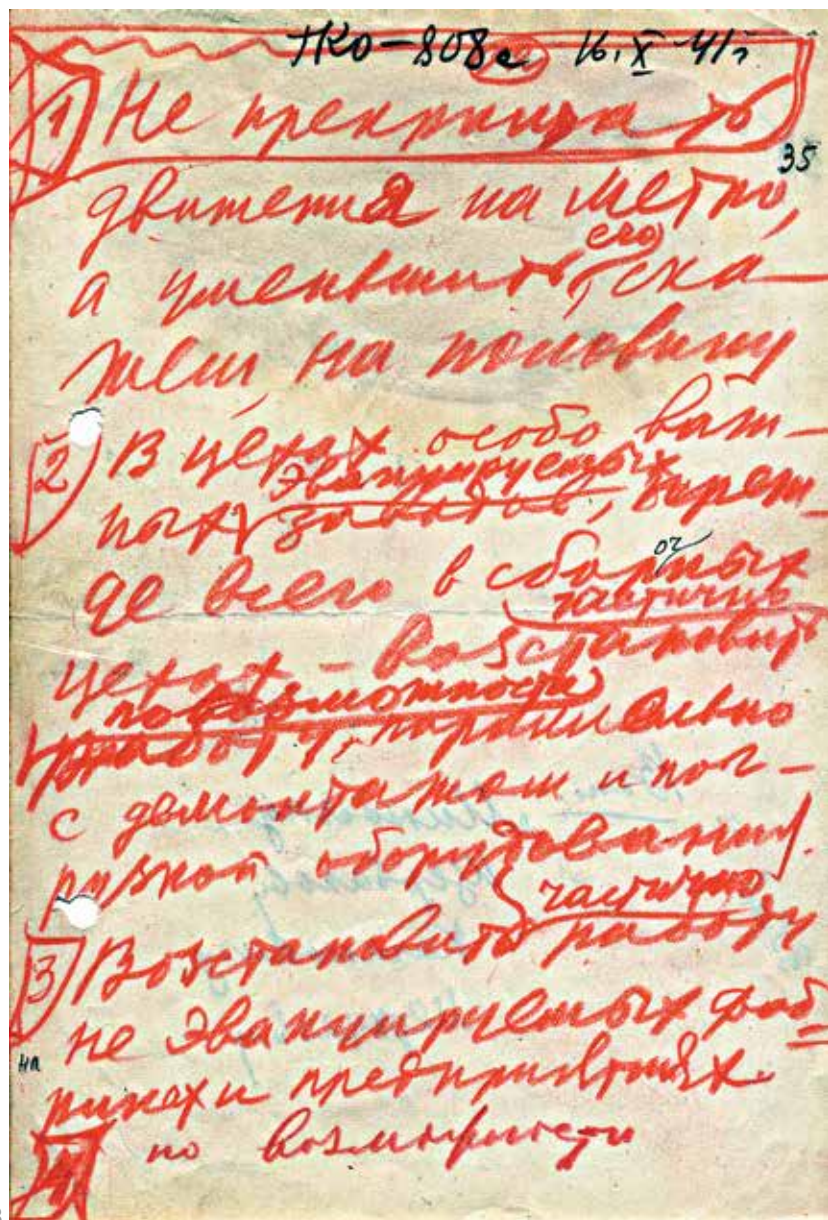 ГКО-808с 16.X-41г
1) Не прекращать
35
движения на метро,
а уменьшить его, ска-
жем, на половину
2) В цехах особо важ-
эвакуируемых
ных заводов, прежд
де всего в сборочных
частично
цехах – возстановить
по возможности
работу, параллельно
с демонтажом и пог-
рузкой оборудования.
частично
3) Возстановить работу
на
не эвакуируемых фаб-
риках и предприятиях
по возможности
4